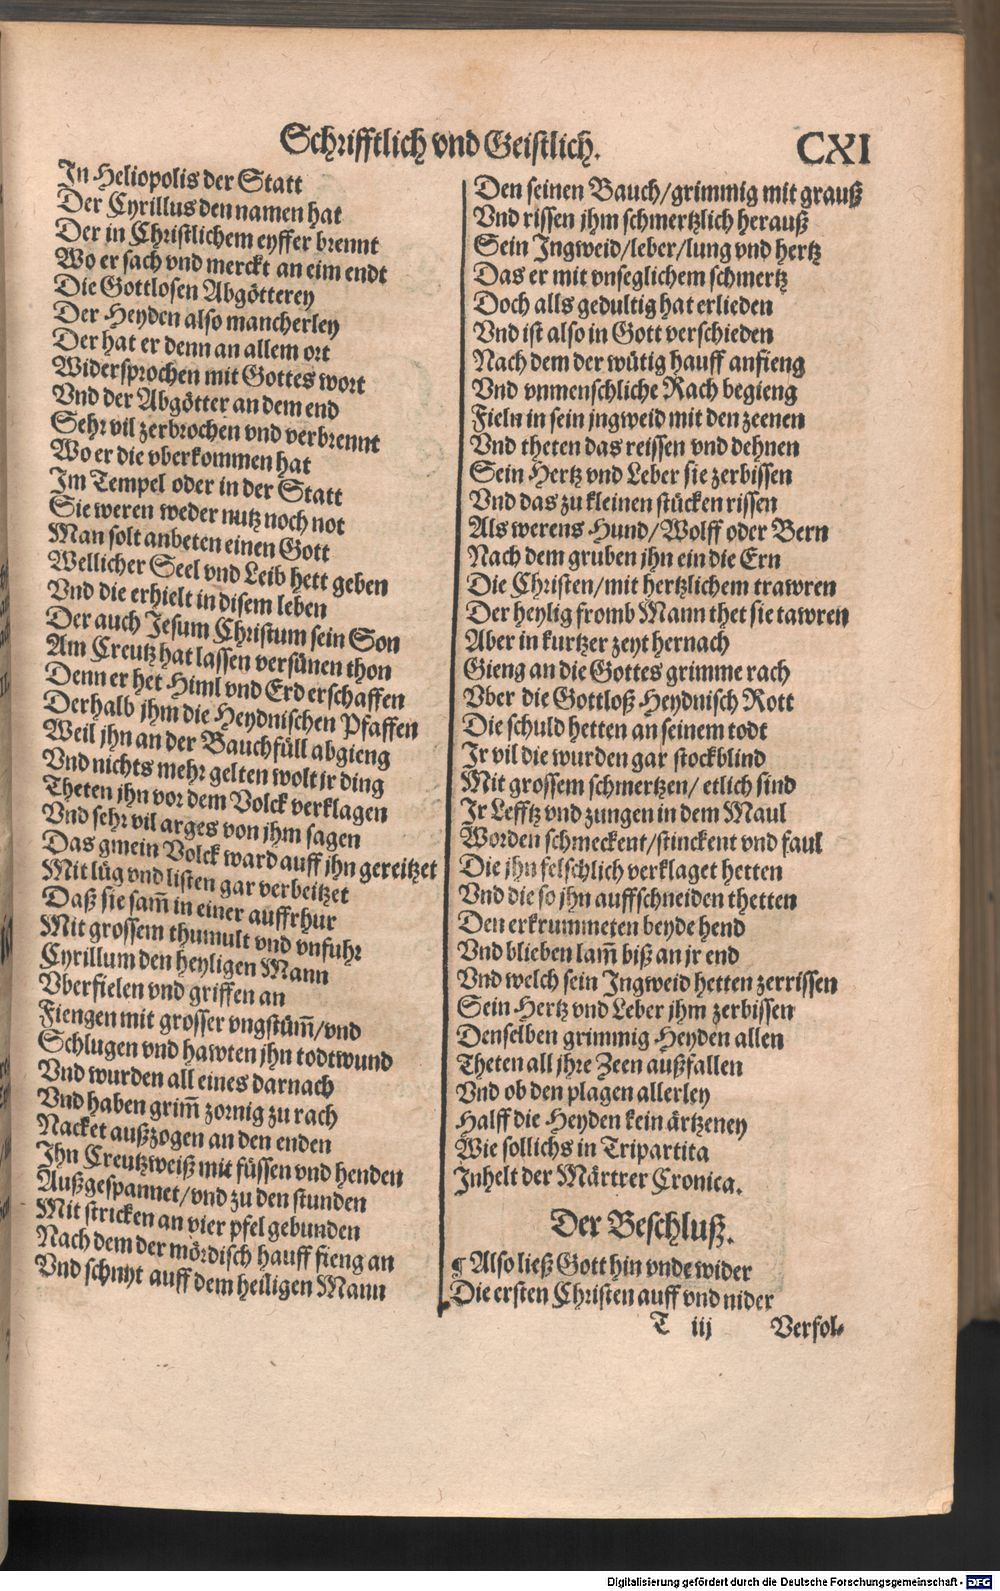 Schrifftlich vnd Geistlich.
CXI
In Heliopolis der Statt
Der Cyrillus den namen hat
Der in Christlichem eyffer brennt
Wo er sach vnd merckt an eim endt
Die Gottlosen Abgötterey
Der Heyden also mancherley
Der hat er denn an allem ort
Widersprochen mit Gottes wort
Vnd der Abgötter an dem end
Sehr vil zerbrochen vnd verbrennt
Wo er die vberkommen hat
Im Tempel oder in der Statt
Sie weren weder nutz noch not
Man solt anbeten einen Gott
Wellicher Seel vnd Leib hett geben
Vnd die erhielt in disem leben
Der auch Jesum Christum sein Son
Am Creutz hat lassen versünen thon
Denn er het Himl vnd Erd erschaffen
Derhalb jhm die Heydnischen Pfaffen
Weil jhn an der Bauchfüll abgieng
Vnd nichts mehr gelten wolt jr ding
Theten jhn vor dem Volck verklagen
Vnd sehr vil arges von jhm sagen
Das gmein Volck ward auff jhn gereitzet
Mit lüg vnd listen gar verbeitzet
Daß sie sam̃ in einer auffrhur
Mit grossem thumult vnd vnfuhr
Cyrillum den heyligen Mann
Vberfielen vnd griffen an
Fiengen mit grosser vngstüm̃/vnd
Schlugen vnd hawten jhn todtwund
Vnd wurden all eines darnach
Vnd haben grim̃ zornig zu rach
Nacket außzogen an den enden
Ihn Creutzweiß mit füssen vnd henden
Außgespannet/vnd zu den stunden
Mit stricken an vier pfel gebunden
Nach dem der mördisch hauff fieng an
Vnd schnyt auff dem heiligen Mann
Den seinen Bauch/grimmig mit grauß
Vnd rissen jhm schmertzlich herauß
Sein Ingweid/leber/lung vnd hertz
Das er mit vnseglichem schmertz
Doch alls gedultig hat erlieden
Vnd ist also in Gott verschieden
Nach dem der wütig hauff anfieng
Vnd vnmenschliche Rach begieng
Fieln in sein jngweid mit den zeenen
Vnd theten das reissen vnd dehnen
Sein Hertz vnd Leber sie zerbissen
Vnd das zu kleinen stücken rissen
Als werens Hund/Wolff oder Bern
Nach dem gruben jhn ein die Ern
Die Christen/mit hertzlichem trawren
Der heylig fromb Mann thet sie tawren
Aber in kurtzer zeyt hernach
Gieng an die Gottes grimme rach
Vber die Gottloß Heydnisch Rott
Die schuld hetten an seinem todt
Ir vil die wurden gar stockblind
Mit grossem schmertzen/ etlich sind
Ir Lefftz vnd zungen in dem Maul
Worden schmeckent/stinckent vnd faul
Die jhn felschlich verklaget hetten
Vnd die so jhn auffschneiden thetten
Den erkrummeten beyde hend
Vnd blieben lam̃ biß an jr end
Vnd welch sein Ingweid hetten zerrissen
Sein Hertz vnd Leber jhm zerbissen
Denselben grimmig Heyden allen
Theten all jhre Zeen außfallen
Vnd ob den plagen allerley
Halff die Heyden kein ärtzeney
Wie sollichs in Tripartita
Inhelt der Märtrer Cronica.
Der Beschluß.
¶ Also ließ Gott hin vnde wider
Die ersten Christen auff vnd nider
T iij
Verfol⸗
Digitalisierung gefördert durch die Deutsche Forschungsgemeinschaft - DFG